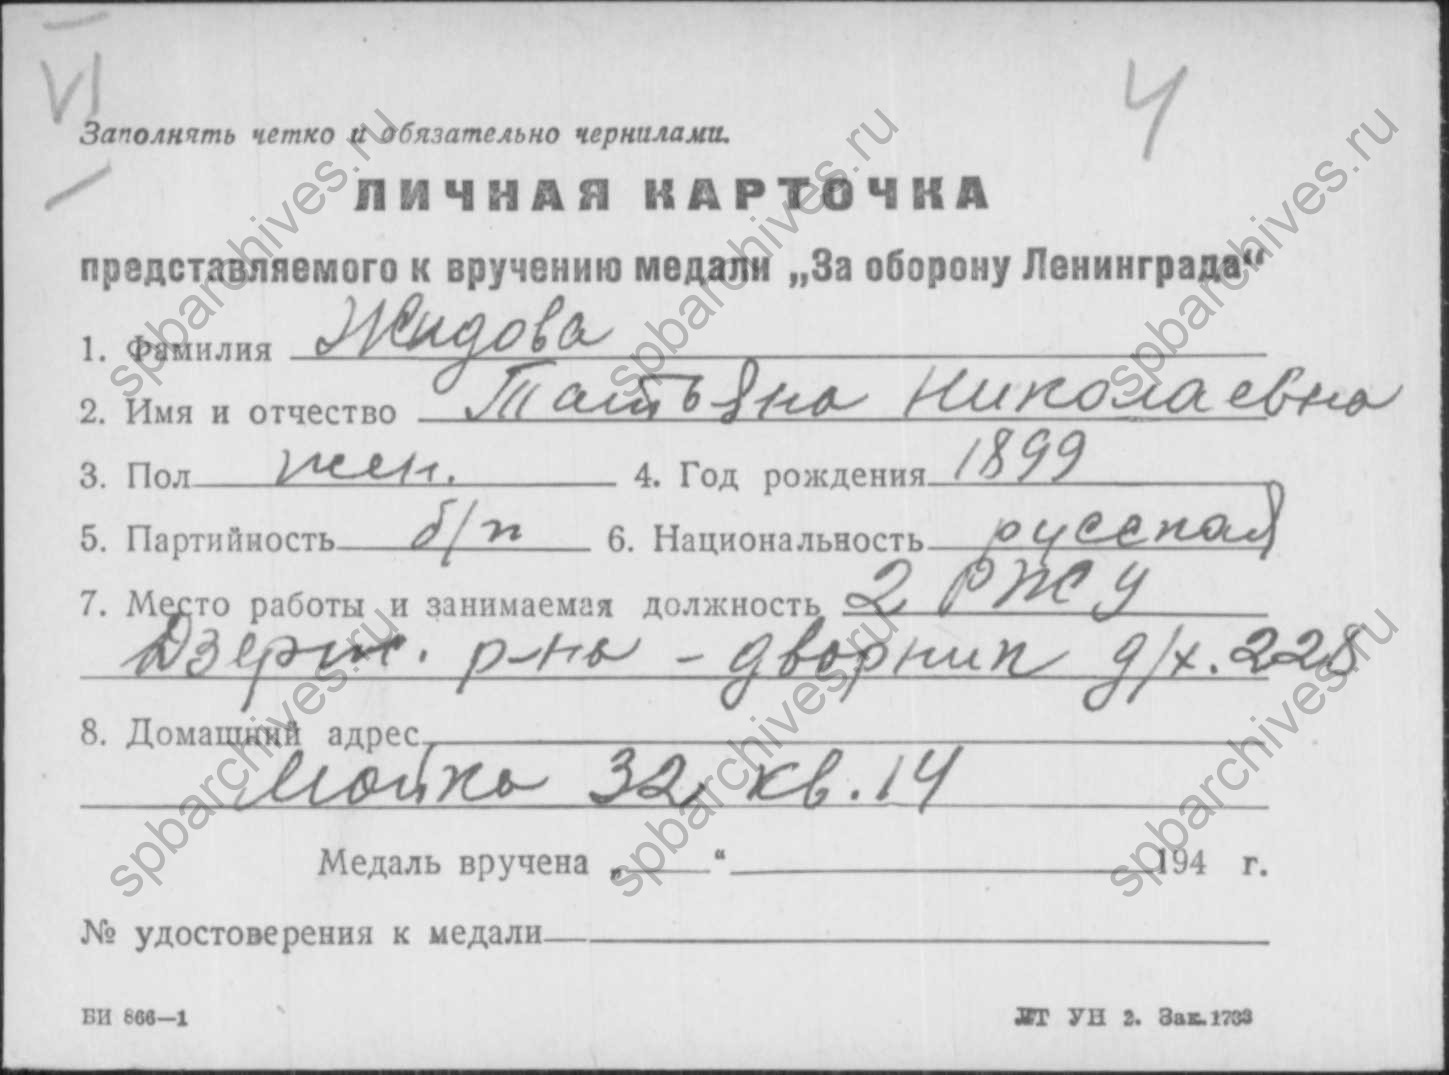 VI
4
Заполнять четко и обязательно чернилами.
ЛИЧНАЯ КАРТОЧКА
представляемого к вручению медали „За оборону Ленинграда“
1. Фамилия Жидова
2. Имя и отчество Татьяна Николаевна
3. Пол жен. 4. Год рождения 1899
5. Партийность б/п 6. Национальность русская
7. Место работы и занимаемая должность 2 РЖУ
Дзерж. р-на - дворник д/х. 228
8. Домашний адрес
Мойка 32 кв. 14
Медаль вручена „ “ 194 г.
№ удостоверения к медали
БИ 866—1 ЛТ УН 2. Зак. 1733
spbarchives.ru
spbarchives.ru
spbarchives.ru
spbarchives.ru
spbarchives.ru
spbarchives.ru